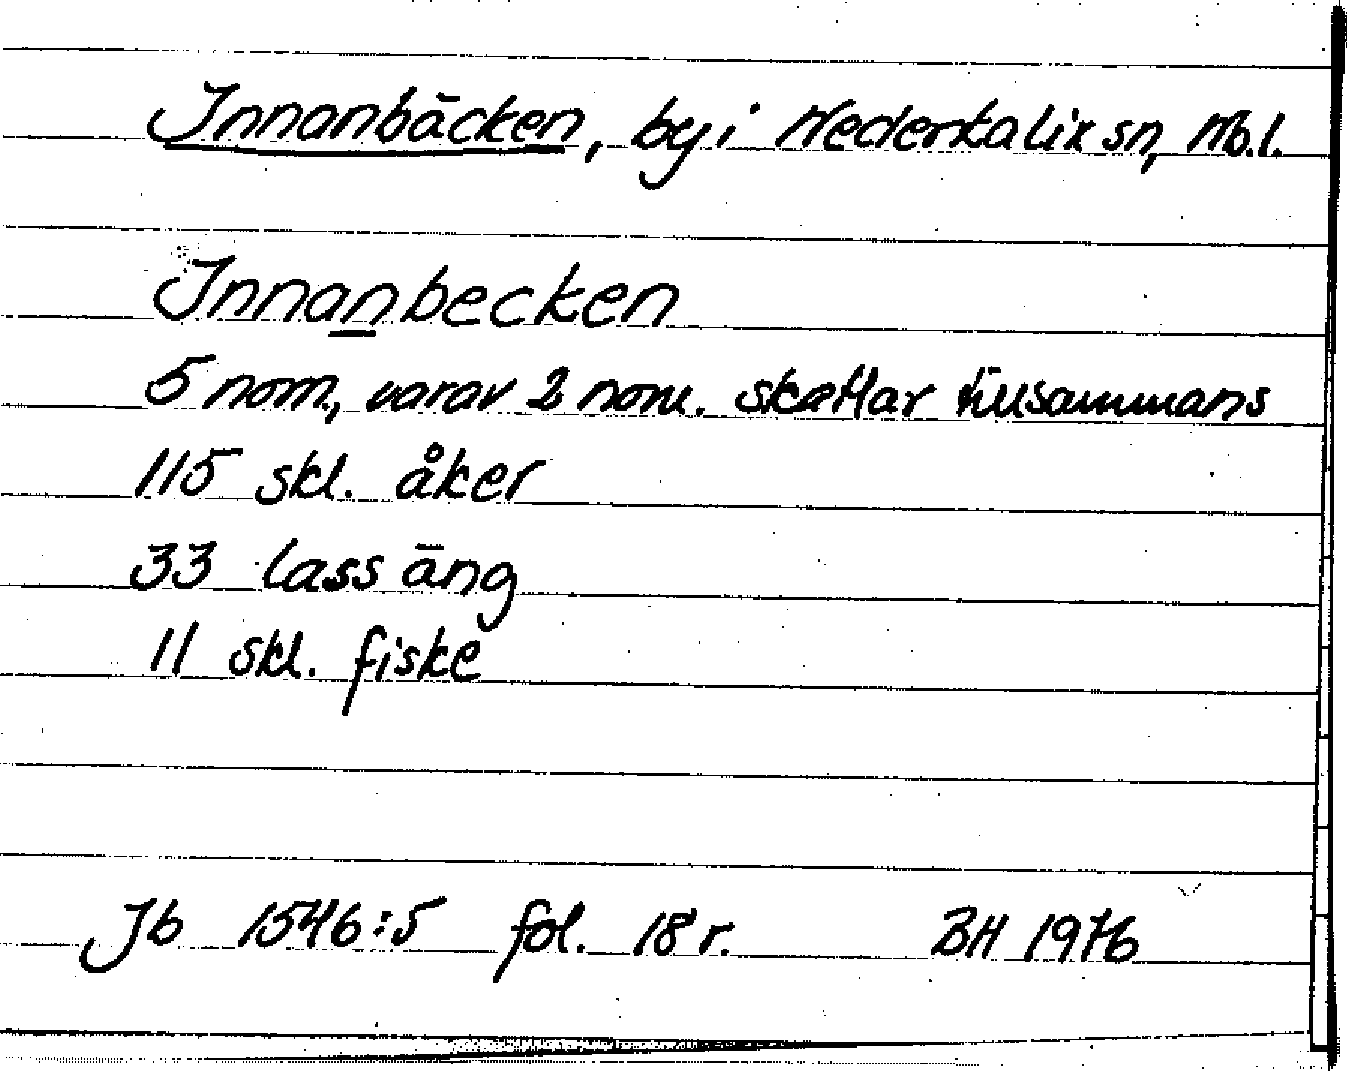 Innanbäcken, by i Nederkalix sn, Nb.l.
Innanbecken
5 nom., varav 2 nom. skattar tillsammans
115 skl. åker
33 lass äng
11 skl. fiske
Jb 1546:5 fol. 18 r. BH 1976